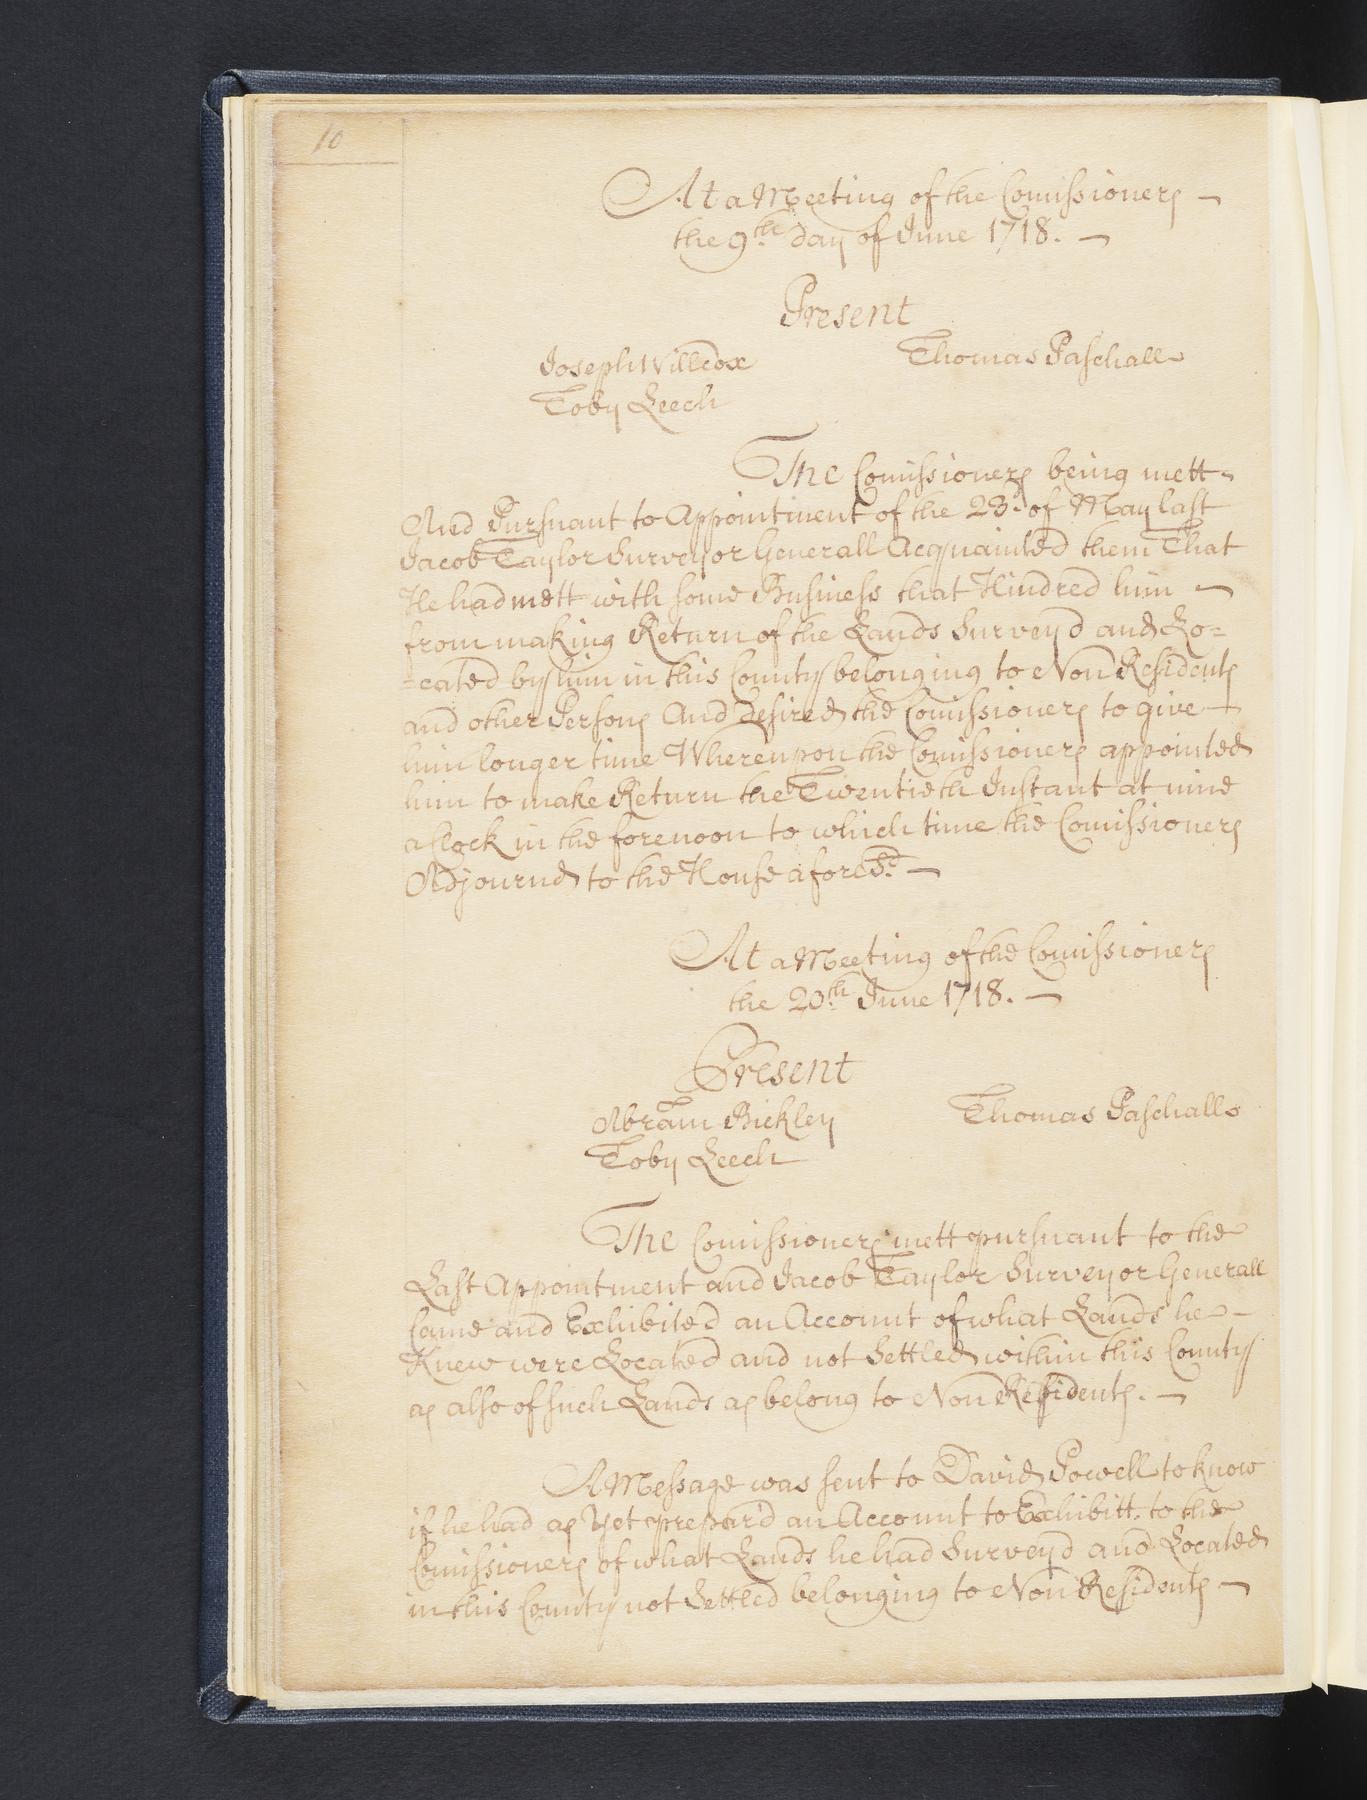 10
At a Meeting of the Comissioners
the 9th day of June 1718.
Present
Joseph Willcox
Thomas Paschall
Toby Leech
The Comissioners being mett
And Pursuant to Appointment of the 23d. of May last
Jacob Taylor Surveyor Generall Acquainted them That
He had mett with some Business that Hindred him
from making Return of the Lands Survey'd and Lo=
=cated by him in this County belonging to Non Residents
and other Persons And desired the Comissioners to give
him longer time Whereupon the Comissioners appointed
him to make Return the Twentieth Instant at nine
a Clock in the forenoon to which time the Comissioners
Adjournd to the House aforesd.
At a Meeting of the Comissioners
the 20th June 1718.
Present
Abram Bickley
Thomas Paschall
Toby Leech
The Comissioners mett pursuant to the
Last Appointment and Jacob Taylor Surveyor Generall
Came and Exhibited an Account of what Lands he
Knew were Located and not Settled within this County
as also of such Lands as belong to Non Residents.
A Message was sent to David Powell to know
if he had as Yet prepar'd an Account to Exhibitt to the
Comissioners of what Lands he had Survey'd and Located
in this County not Settled belonging to Non Residents